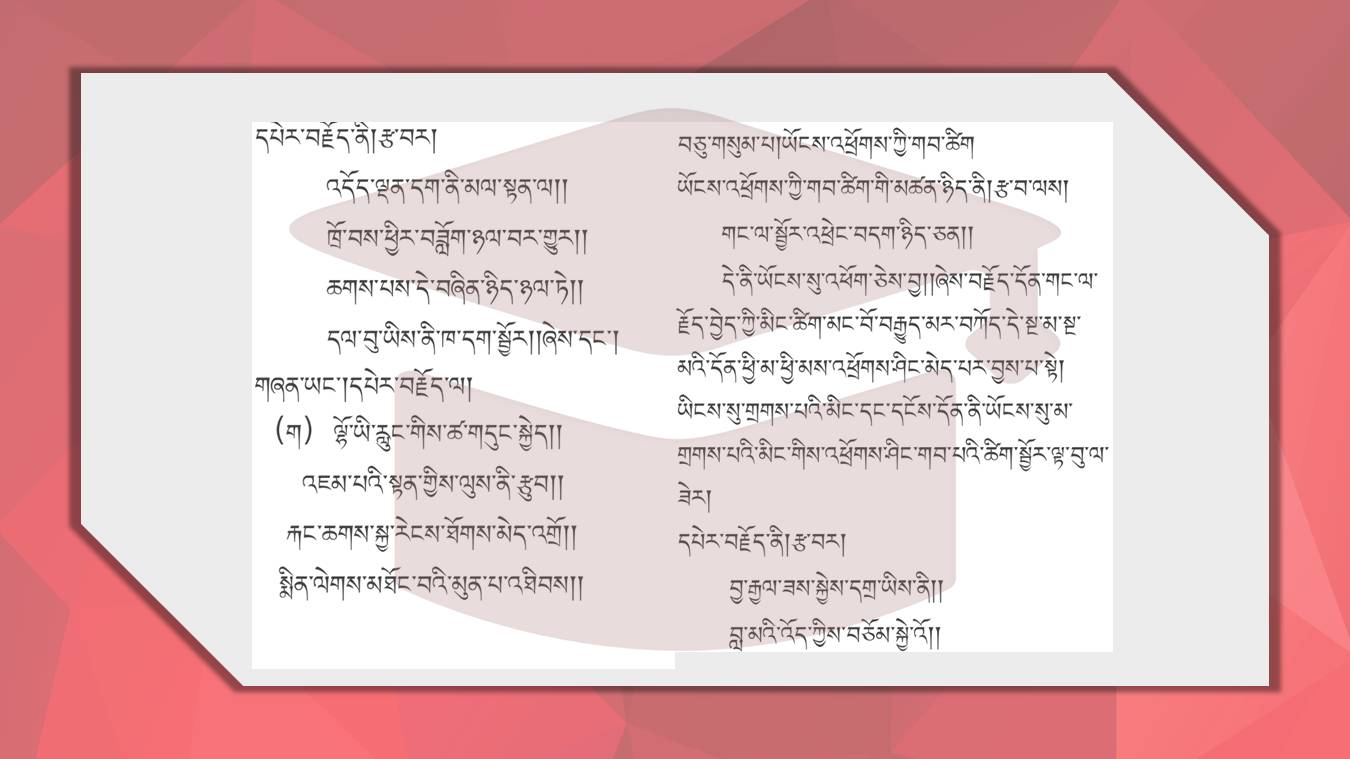 དཔེར་བརྗོད་ནི།རྩ་བར།
འདོད་ལྡན་དག་ནི་མལ་སྟན་ལ།།
ཁྲོ་བས་ཕྱིར་བཟློག་ཉལ་བར་གྱུར།།
ཆགས་པས་དེ་བཞིན་ཉིད་ཉལ་ཏེ།།
དལ་བུ་ཡིས་ནི་ཁ་དག་སྦྱོར།།ཞེས་དང་།
གཞན་ཡང་།དཔེར་བརྗོད་ལ།
(ག) ལྷོ་ཡི་རླུང་གིས་ཚ་གདུང་སྐྱེད།།
འཇམ་པའི་སྟན་གྱིས་ལུས་ནི་རྩུབ།།
རྐང་ཆགས་སྐྱ་རེངས་ཐོགས་མེད་འགྲོ།།
སྨིན་ལེགས་མཐོང་བའི་མུན་པ་འཐིབས།།
བཅུ་གསུམ་པ།ཡོངས་འཕྲོགས་ཀྱི་གབ་ཚིག
ཡོངས་འཕྲོགས་ཀྱི་གབ་ཚིག་གི་མཚན་ཉིད་ནི།རྩ་བ་ལས།
གང་ལ་སྦྱོར་འཕྲེང་བདག་ཉིད་ཅན།།
དེ་ནི་ཡོངས་སུ་འཕོག་ཅེས་བྱ།།ཞེས་བརྗོད་དོན་གང་ལ་
རྗོད་བྱེད་ཀྱི་མིང་ཚིག་མང་པོ་བརྒྱུད་མར་བཀོད་དེ་སྔ་མ་སྔ་
མའི་དོན་ཕྱི་མ་ཕྱི་མས་འཕྲོགས་ཤིང་མེད་པར་བྱས་པ་སྟེ།
ཡིངས་སུ་གྲགས་པའི་མིང་དང་དངོས་དོན་ནི་ཡོངས་སུ་མ་
གྲགས་པའི་མིང་གིས་འཕྲོགས་ཤིང་གབ་པའི་ཚིག་སྦྱོར་ལྟ་བུ་ལ་
ཟེར།
དཔེར་བརྗོད་ནི།རྩ་བར།
བྱ་རྒྱལ་ཟས་སྐྱེས་དགྲ་ཡིས་ནི།།
བླ་མའི་འོད་ཀྱིས་བཅོམ་སྐྱེ་བོ།།